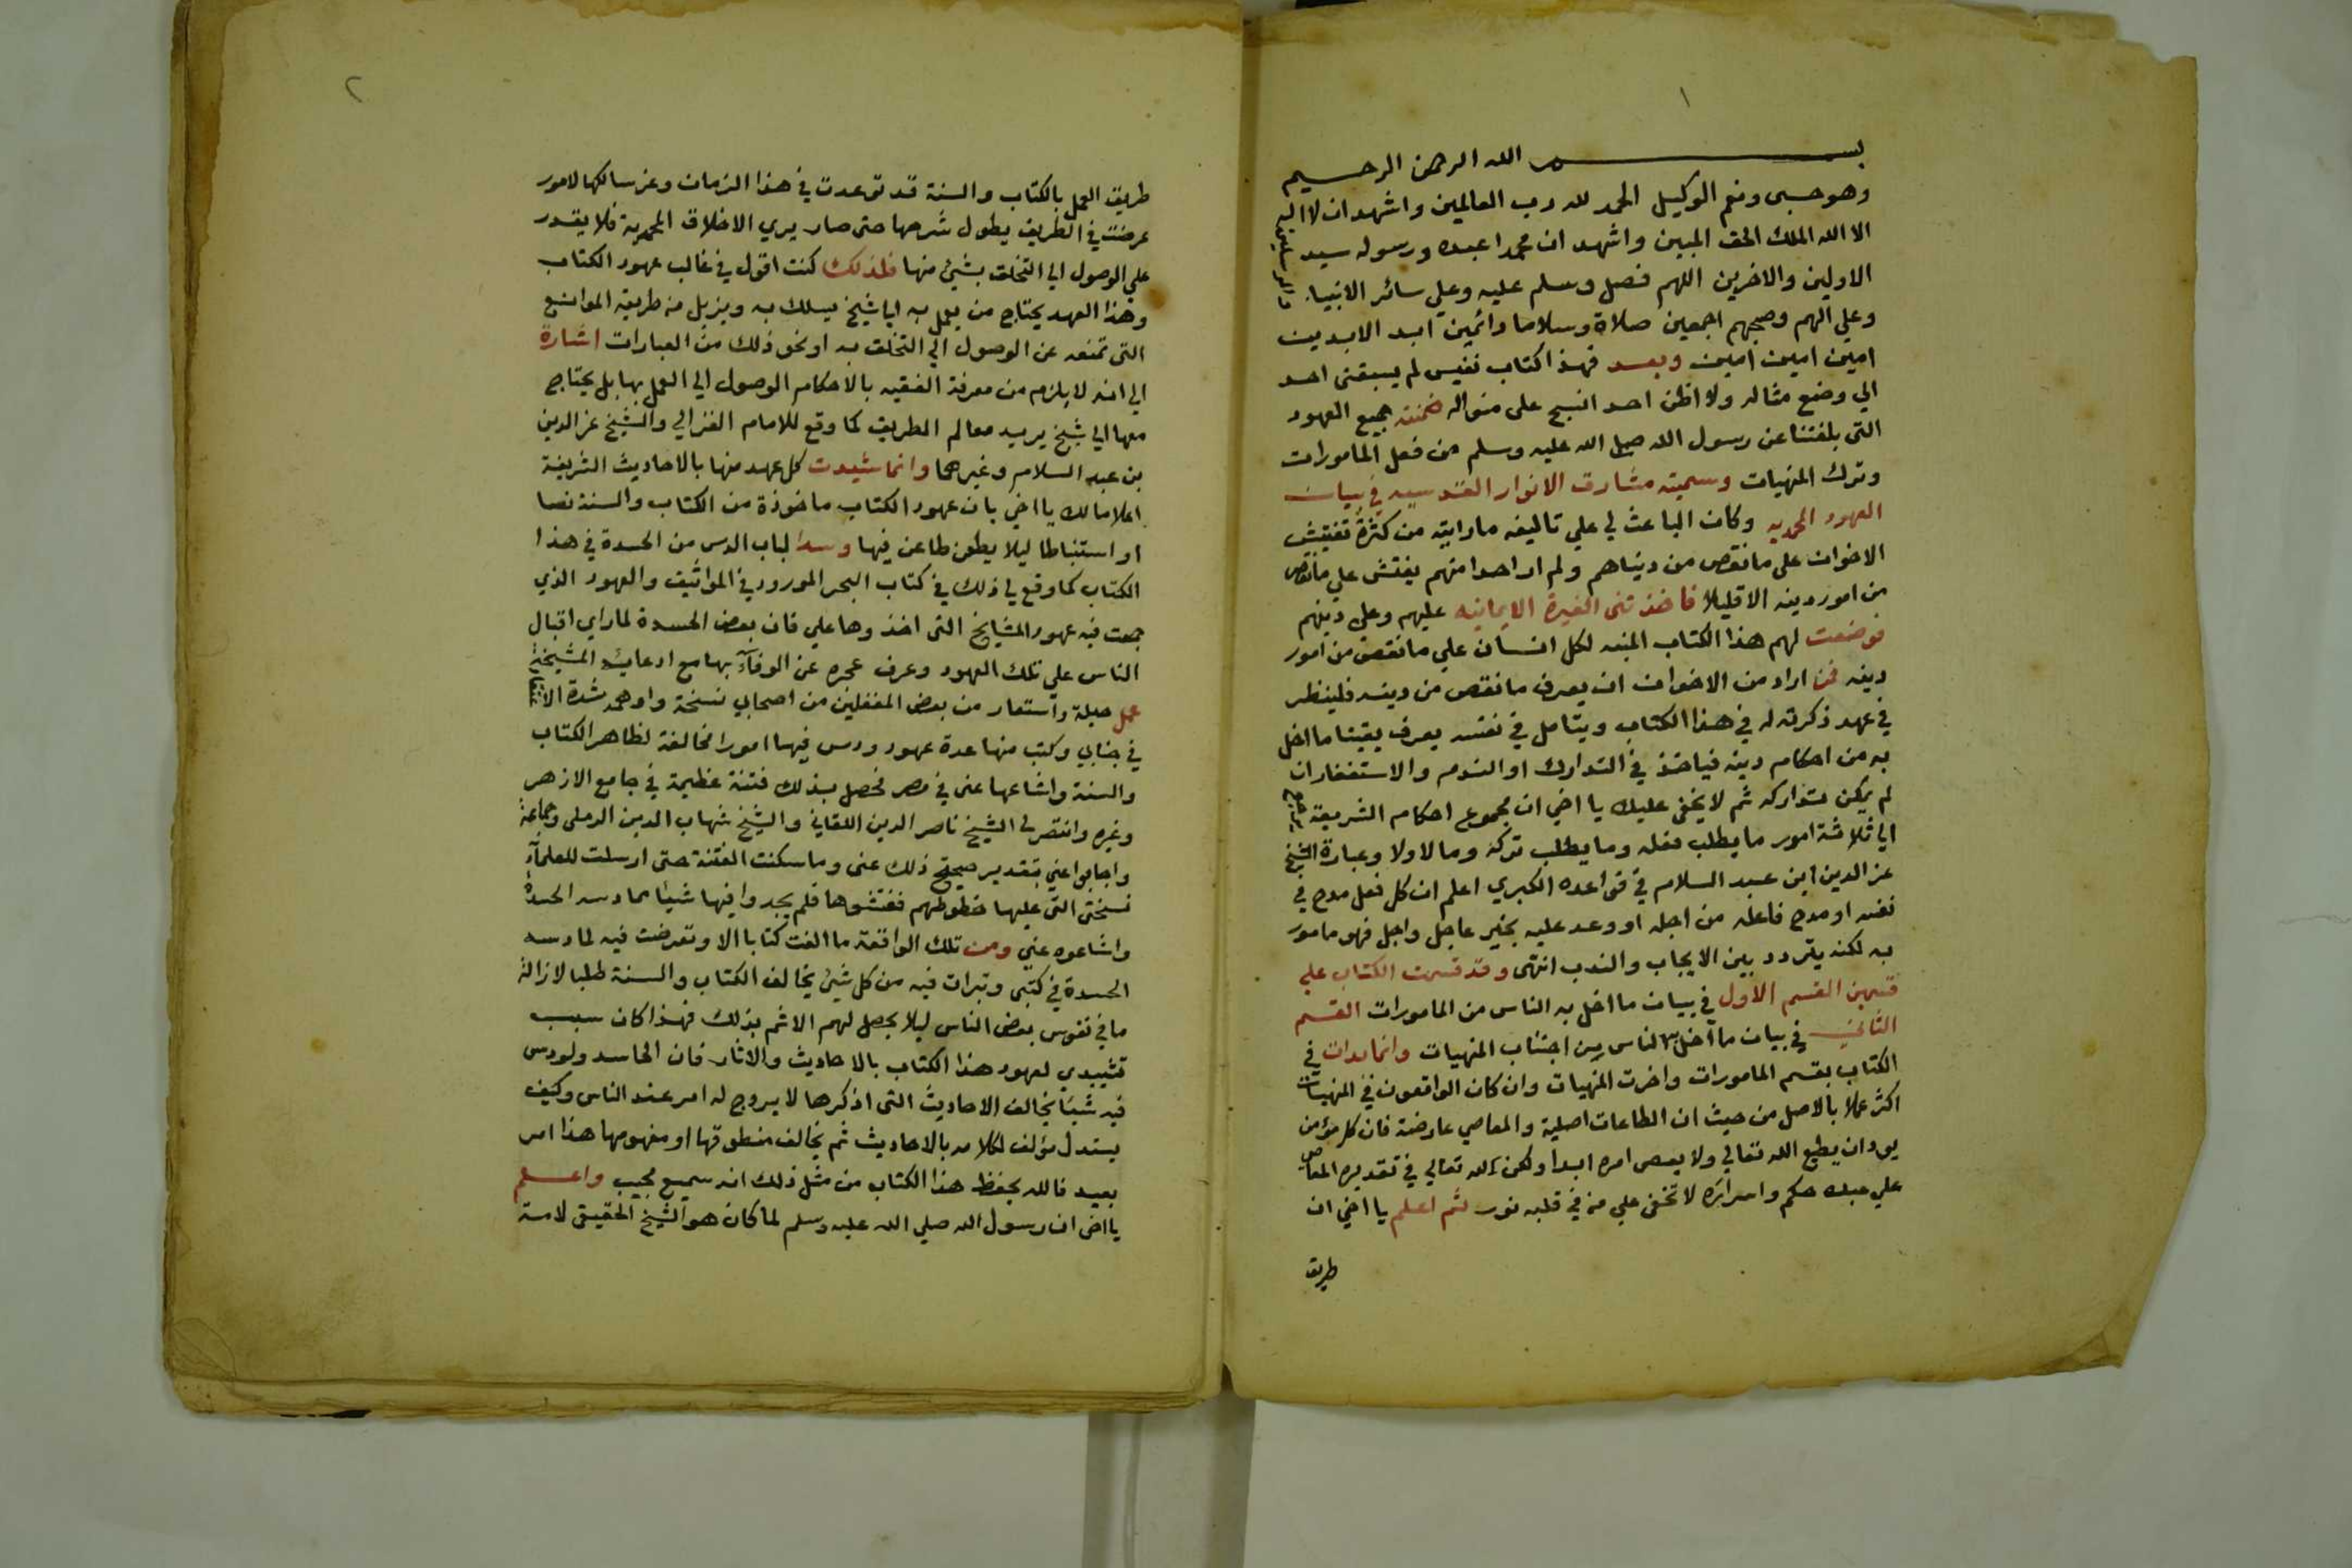 ١
بسم الله الرحمن الرحيم
وهو حسبى ونعم الوكيل الحمد لله رب العالمين واشهد ان لا اله
الا الله الملك الحق المبين واشهد ان محمدا عبده ورسوله سيد
الاولين والاخرين اللهم فصل وسلم عليه وعلي سائر الانبياء والمرسلين
وعلي الهم وصحبهم اجمعين صلاة وسلاما دائمين ابد الابدين
امين امين امين وبعد فهذا كتاب نفيس لم يسبقنى احد
الي وضع مثاله ولا اظن احد انسج على منواله ضمنته جميع العهود
التى بلغتنا عن رسول الله صلى الله عليه وسلم من فعل المامورات
وترك المنهيات وسميته مشارق الانوار القدسيه في بيان
العهود المحمديه وكان الباعث لي علي تاليفه ما رايته من كثرة تفتيش
الاخوان على ما نقص من دنياهم ولم ار احدا منهم يفتش علي ما نقص
من امور دينه الا قليلا فاخذتنى الغيرة الايمانيه عليهم وعلى دينهم
فوضعت لهم هذا الكتاب المنبه لكل انسان علي ما نقص من امور
دينه فمن اراد من الاخوان ان يعرف ما نقص من دينه فلينظر
في عهد ذكرته له في هذا الكتاب ويتامل في نفسه يعرف يقينا ما اخل
به من احكام دينه فياخذ في التدارك او الندم والاستغفار ان
لم يمكن تداركه ثم لا يخفى عليك يا اخي ان مجموع احكام الشريعة ترجع
الي ثلاثة امور ما يطلب فعله وما يطلب تركه وما لا ولا وعبارة الشيخ
عز الدين ابن عبد السلام في قواعده الكبري اعلم ان كل فعل مدح في
نفسه او مدح فاعله من اجله او وعد عليه بخير عاجل واجل فهو مامور
به لكنه يتردد بين الايجاب والندب انتهى وقد قسمت الكتاب علي
قسمين القسم الاول في بيان ما اخل به الناس من المامورات القسم
الثاني في بيان ما اخل به الناس من اجتناب المنهيات وانما بدات في
الكتاب بقسم المامورات واخرت المنهيات وان كان الواقعون في المنهيات
اكثر عملا بالاصل من حيث ان الطاعات اصلية والمعاصي عارضة فان كل مؤمن
يود ان يطيع الله تعالي ولا يعصى امره ابدا ولكن لله تعالي في تقديره المعاصي
علي عبده حكم واسرار لا تخفى علي من في قلبه نور ثم اعلم يا اخي ان
طريق
٢
طريق العمل بالكتاب والسنة قد توعدت في هذا الزمان وعز سالكها لامور
عرضت في الطريق يطول شرحها حتى صار يري الاخلاق المحمدية فلا يقدر
علي الوصول الي التخلق بشيئ منها فلذلك كنت اقول في غالب عهود الكتاب
وهذا العهد يحتاج من يعمل به الي شيخ يسلك به ويزيل من طريقه الموانع
التى تمنعه عن الوصول الي التخلق به او نحو ذلك من العبارات اشارة
الي انه لا يلزم من معرفة الفقيه بالاحكام الوصول الي العمل بها بل يحتاج
معها الي شيخ يريه معالم الطريق كما وقع للامام الغزالي والشيخ عز الدين
بن عبد السلام وغيرهما وانما شيدت كل عهد منها بالاحاديث الشريفة
اعلاما لك يا اخي بان عهود الكتاب ماخوذة من الكتاب والسنة نصا
او استنباطا ليلا يطعن طاعن فيها وسدا لباب الدس من الحسدة في هذا
الكتاب كما وقع لي ذلك في كتاب البحر المورود في المواثيق والعهود الذي
جمعت فيه عهود المشايخ التى اخذوها علي فان بعض الحسدة لما راي اقبال
الناس علي تلك العهود وعرف عجزه عن الوفاء بها مع ادعائه المشيخة
عمل حيلة واستعار من بعض المغفلين من اصحابي نسخة واوهمه شدة
في جنابي وكتب منها عدة عهود ودس فيها امورا مخالفة لظاهر الكتاب
والسنة واشاعها عنى في مصر فحصل بذلك فتنة عظيمة في جامع الازهر
وغيره وانتصر لى الشيخ ناصر الدين اللقاني والشيخ شهاب الدين الرملى وجماعة
واجابوا عني بتقدير صحة ذلك عنى وما سكنت الفتنة حتى ارسلت للعلمآء
نسختى التى عليها خطوطهم ففتشوها فلم يجدوا فيها شيئا مما دسه الحسدة
واشاعوه عني ومن تلك الواقعة ما الفت كتابا الا وتعرضت فيه لما دسه
الحسدة في كتبى وتبرات فيه من كل شيئ يخالف الكتاب والسنة طلبا لازالة
ما في نفوس بعض الناس ليلا يحصل لهم الاثم بذلك فهذا كان سبب
تشييدي لعهود هذا الكتاب بالاحاديث والاثار فان الحاسد ولو دس
فيه شيئا يخالف الاحاديث التى اذكرها لا يروج له امر عند الناس وكيف
يستدل مؤلف لكلامه بالاحاديث ثم يخالف منطوقها او مفهومها هذا امر
بعيد فالله يحفظ هذا الكتاب من مثل ذلك انه سميع مجيب واعلم
يا اخى ان رسول الله صلي الله عليه وسلم لما كان هو الشيخ الحقيقى لامته